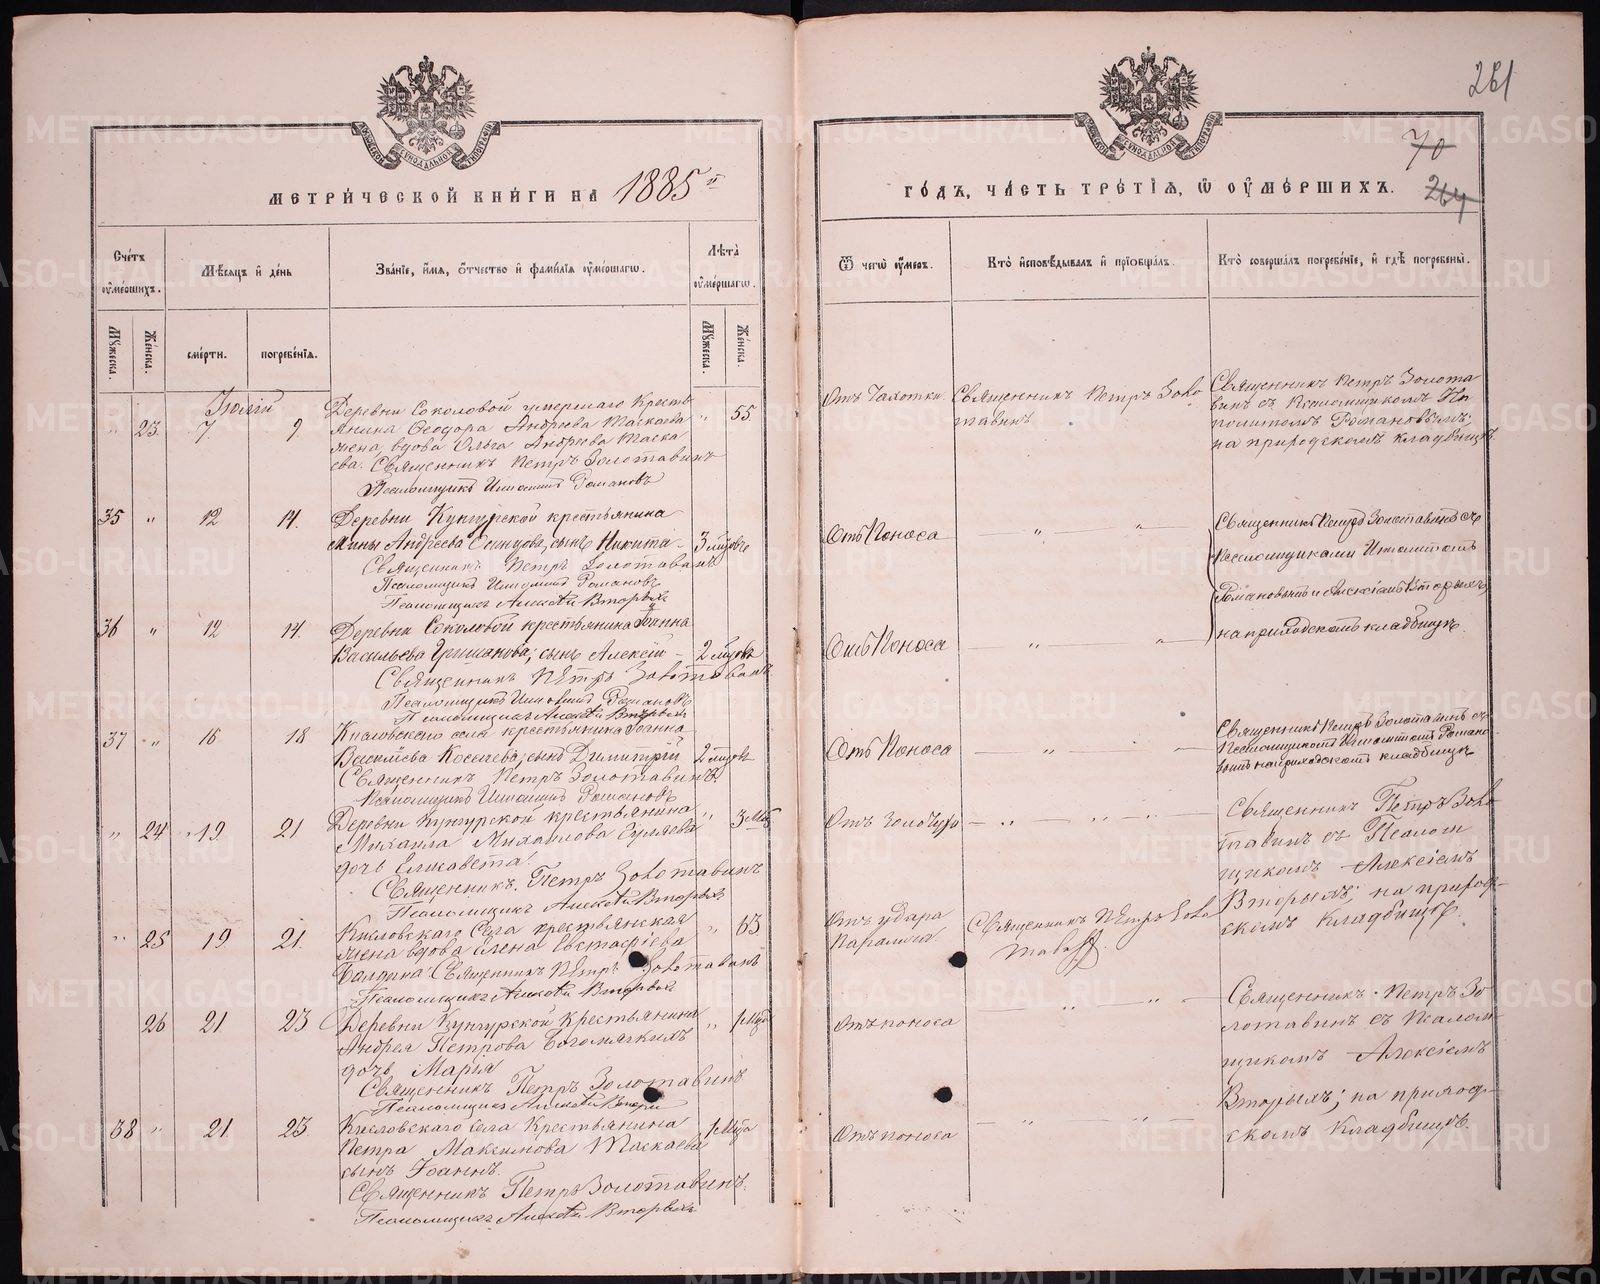 261
70
264
МЕТРИ́ЧЕСКОЙ КНИ́ГИ НА 1885й
ГО́ДЪ, ЧА́СТЬ ТРЕ́ТІЯ, Ѡ ОУ҆МЕ́РШИХЪ.
Сче́тъ оу҆ме́ршихъ.
Мѣ́сяцъ и҆ де́нь
Зва́ніе, и҆́мя, ѻ҆́тчество и҆ фами́лія оу҆ме́ршагѡ.
Лѣ́та оу҆ме́ршагѡ.
Ѿ чегѡ̀ оу҆́меръ.
Кто̀ и҆сповѣ́дывалъ и҆ пріѡбща́лъ.
Кто̀ соверша́лъ погребе́ніе, и҆ гдѣ̀ погребены̀.
Му́жеска.
Же́нска.
сме́рти.
погребе́нія.
Му́жеска.
Же́нска.
Іюлій
" 23. 7 9 Деревни Соколовой умершаго кресть
янина Ѳеодора Андреева Таскаева " 55
жена вдова Ольга Андреева Таска
ева. Священникъ Петръ Золотавинъ
Псаломщикъ Ипполитъ Романовъ
Отъ Чахотки Священникъ Петръ Золо
тавинъ
Священникъ Петръ Золота
винъ съ Псаломщикомъ Ип
политомъ Романовымъ;
на приходскомъ кладбищѣ
35 " 12 14. Деревни Кунгурской крестьянина
Мины Андреева Синцова, сынъ Никита – 3 мѣсяцъ
Священникъ Петръ Золотавинъ
Псаломщикъ Ипполитъ Романовъ
Псаломщикъ Алексѣй Вторыхъ
Отъ Поноса " "
Священникъ Петръ Золотавинъ съ
Псаломщиками Ипполитомъ
Романовымъ и Алексѣемъ Вторыхъ
на приходскомъ кладбищѣ.
36 " 12 14. Деревни Соколовой крестьянина Іоанна
Васильева Гришанова; сынъ Алексѣй – 2 мѣсяца
Священникъ Петръ Золотавинъ
Псаломщикъ Ипполитъ Романовъ
Псаломщикъ Алексѣй Вторыхъ
Отъ Поноса " "
37 " 16 18 Кисловскаго села крестьянина Іоанна
Васильева Косычева; сынъ Димитрій 2 мѣсяца
Священникъ Петръ Золотавинъ.
Псаломщикъ Ипполитъ Романовъ
Отъ Поноса " "
Священникъ Петръ Золотавинъ съ
Псаломщикомъ Ипполитомъ Романо
вымъ на приходскомъ кладбищѣ
" 24 19 21 Деревни Кунгурской крестьянина
Михаила Михаилова Гуляева " 3 мѣс
дочь Елисавета.
Священникъ Петръ Золотавинъ
Псаломщикъ Алексѣй Вторыхъ
Отъ золотухи " " "
Священникъ Петръ Золо
тавинъ съ Псалом
щикомъ Алексіемъ
Вторымъ; на приход
скомъ кладбищѣ.
" 25 19 21. Кисловскаго Села крестьянская
жена вдова Елена Евстафіева " 63
Священникъ Петръ Золотавинъ
Псаломщикъ Алексѣй Вторыхъ
Отъ удара
Паралича
Священникъ Петръ Золо
тавинъ
26 21 23 Деревни Кунгурской Крестьянина
Андрея Петрова Богомягкихъ " 1 мѣся
дочь Марія
Священникъ Петръ Золотавинъ
Псаломщикъ Алексѣй Вторы
Отъ поноса " "
Священникъ Петръ Зо
лотавинъ съ Псалом
щикомъ Алексіемъ
Вторымъ; на приход
скомъ кладбищѣ.
38 " 21 23 Кисловскаго села Крестьянина
Петра Максимова Таскаева 1 мѣся
сынъ Іоаннъ.
Священникъ Петръ Золотавинъ.
Псаломщикъ Алексѣй Вторыхъ
Отъ поноса " "
METRIKI.GASO-URAL.RU